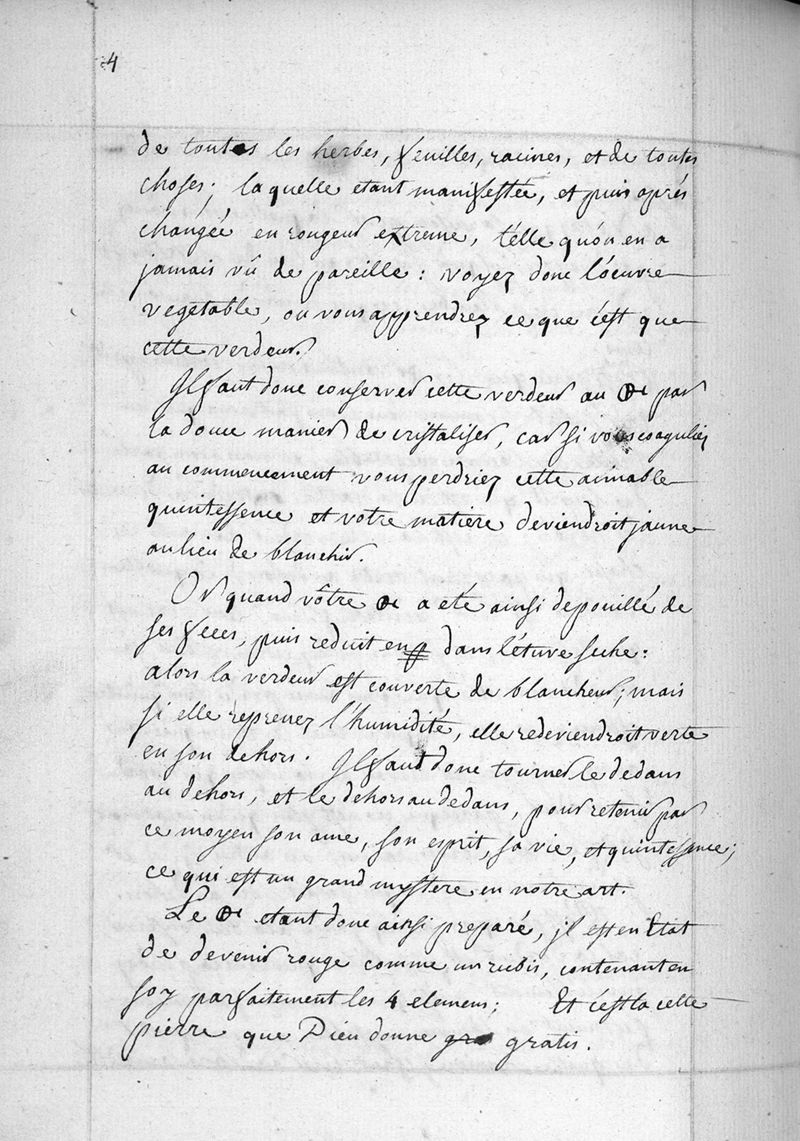 4
de toutes les herbes, feuilles, racines, et de toutes
choses; laquelle etant manifestée, et puis aprés
changée en rougeur extreme, télle qu'on en a
jamais vû de pareille: voyez donc l'oeuvre
vegetable, ou vous apprendrez ce que c'est que
cette verdeur.
Jl faut donc conserver cette verdeur au par
la douce maniere de cristaliser, car si vous coaguliez
au commencement vous perdriez cette aimable
quintessence et votre matiere deviendroit jaune
au lieu de blanchir.
Or quand vôtre a eté ainsi depouillé de
ses feces, puis reduit en dans l'étuve seche:
alors la verdeur est couverte de blancheur; mais
si elle reprenez l'humidité, elle redeviendroit verte
en son dehors. Jl faut donc tourner le dedans
au dehors, et le dehors au dedans, pour retenir par
ce moyen son ame, son esprit, sa vie, et quintessence;
ce qui est un grand mystere en notre art.
Le etant donc ainsi preparé, jl est en Etat
de devenir rouge comme un rubis, contenant en
soy parfaitement les 4 elemens; Et c'est la cette
pierre que Dieu donne gra gratis.